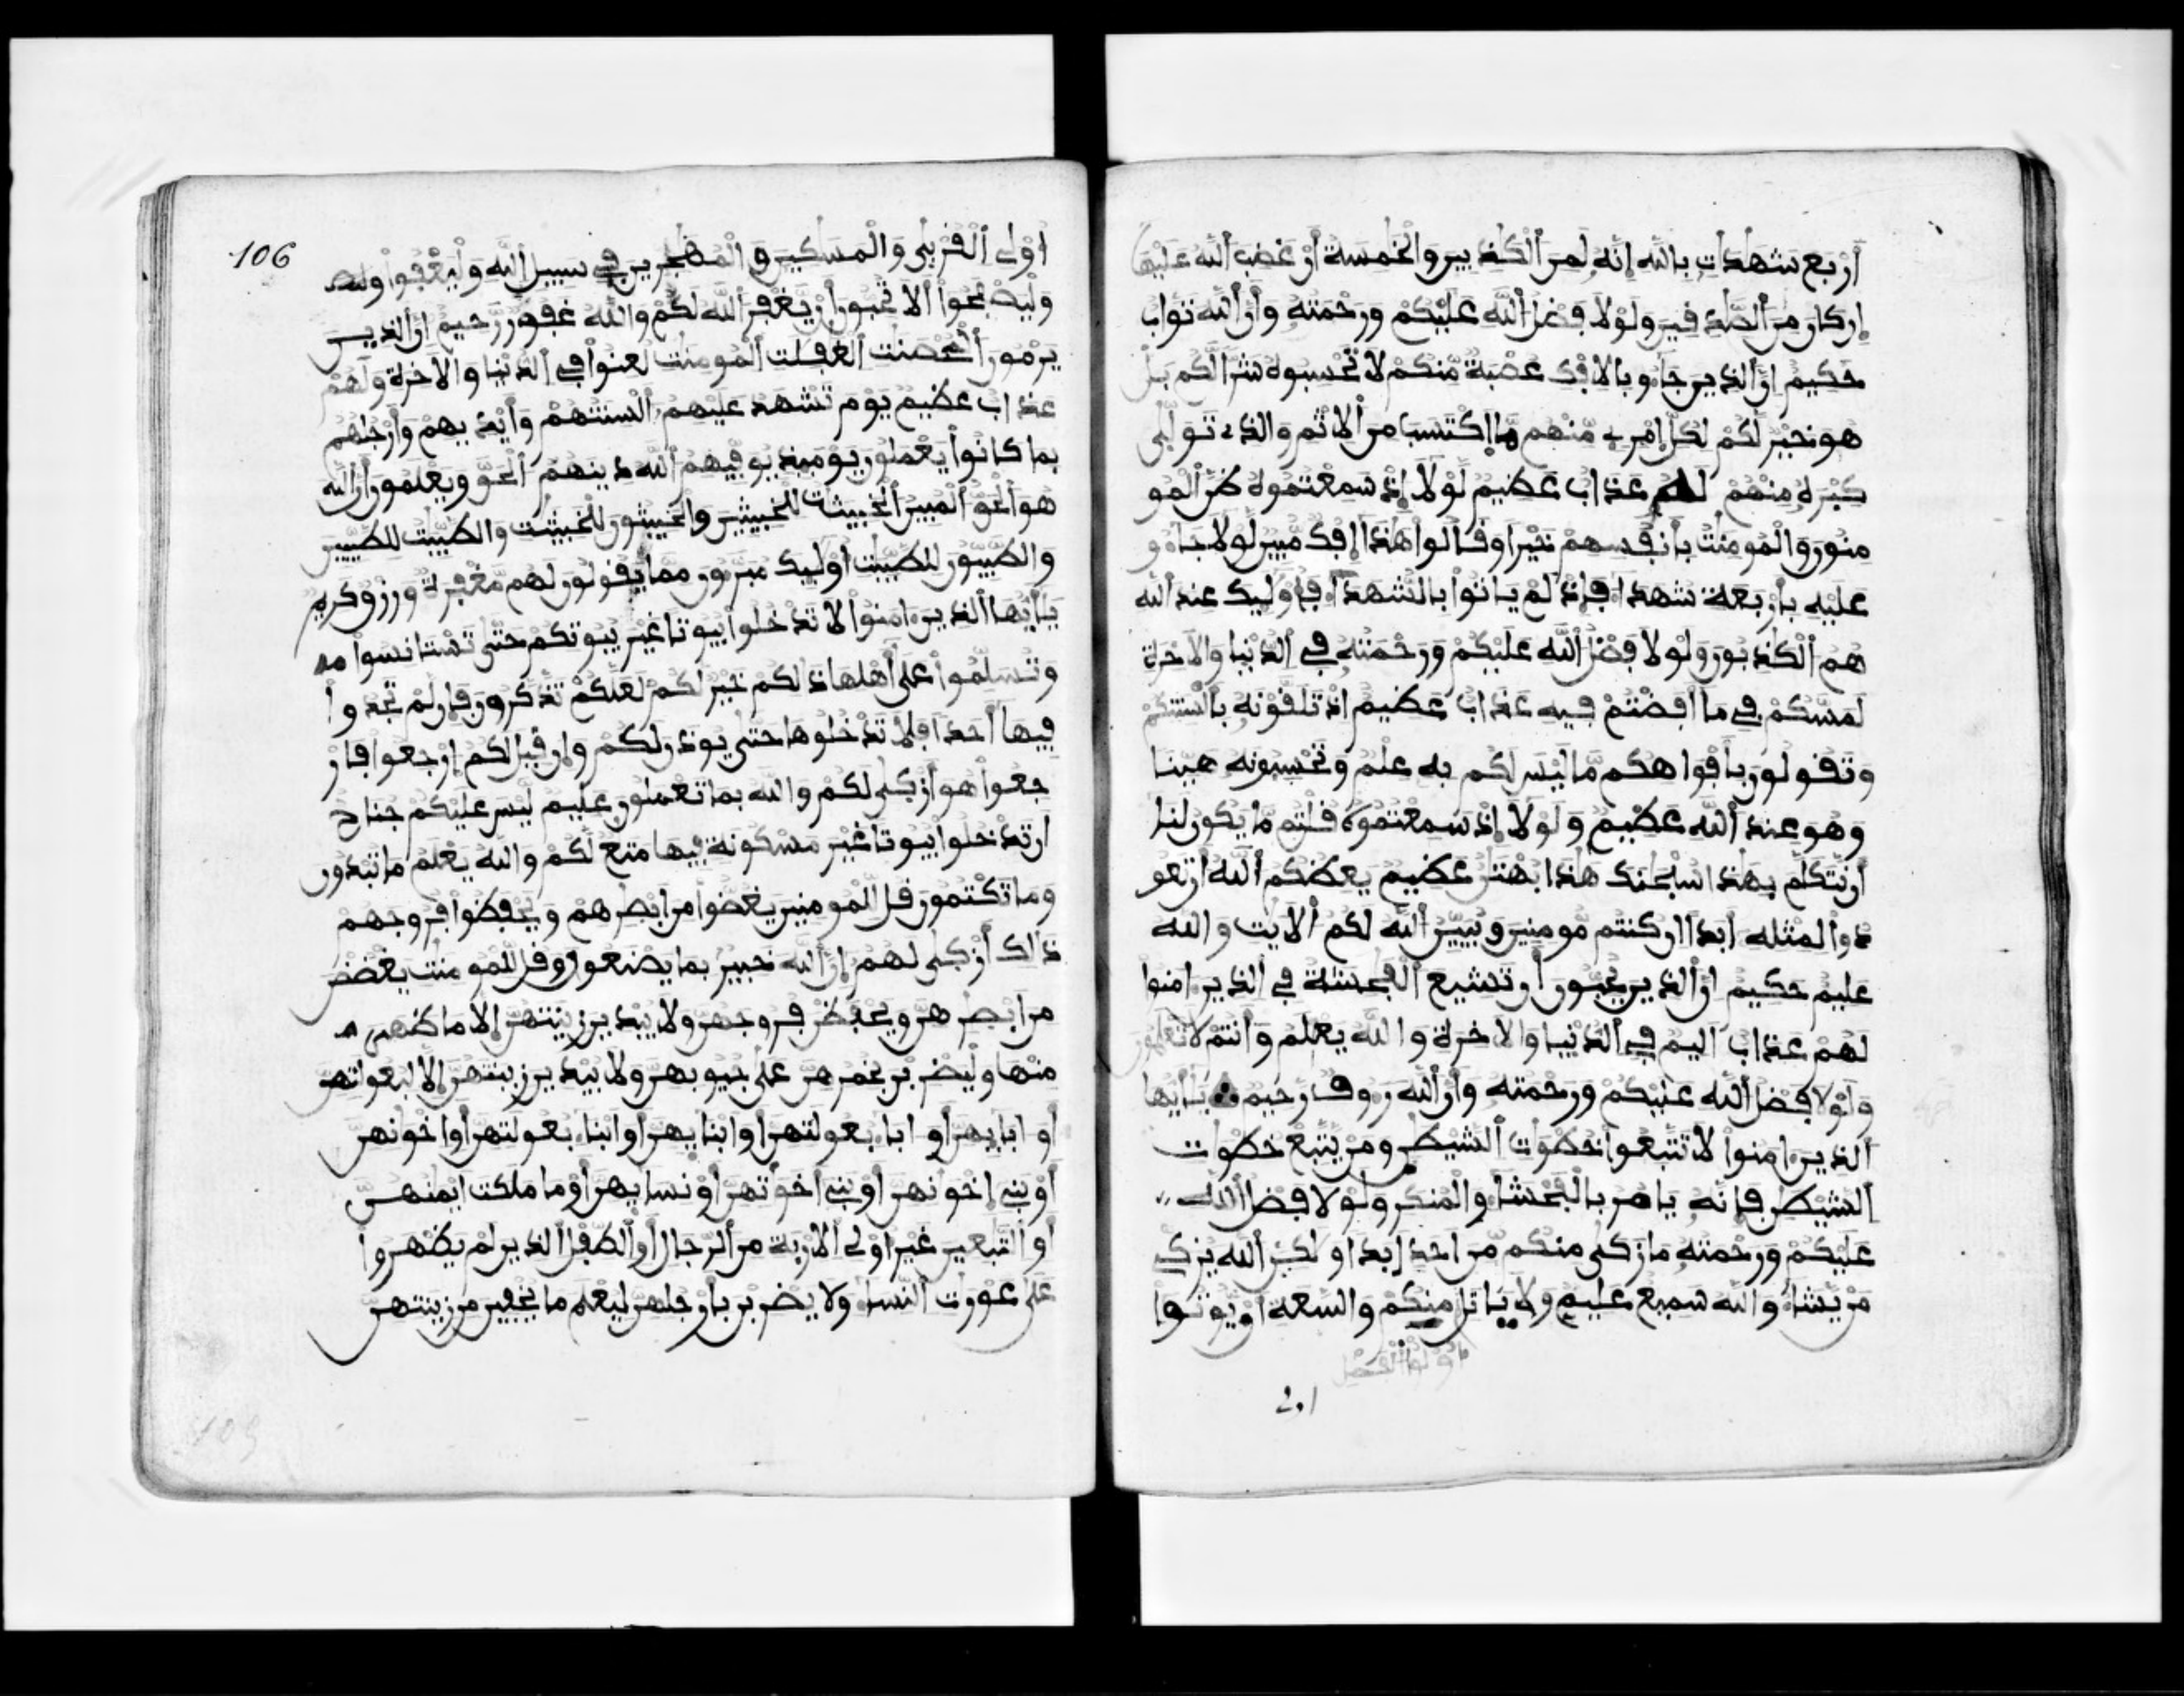 أربع شهدات بالله إنه لمن الكذبين والخمسة أن غضب الله عليها
إن كان من الصدفين ولولا فضل الله عليكم ورحمته وأن الله تواب
حكيم إن الذين جاءو بالافك عصبة منكم لا تحسبوه شرا لكم بل
هو خير لكم لكل امرے منهم ما اكتسب من الاثم والذے تولى
كبره منهم له عذاب عظيم لولا إذ سمعتموه ظن المو
منون والمومنت بأنفسهم خيرا وقالوا هذا إفك مبين لولا جاءو
عليه بأربعة شهداء فإذ لم ياتوا بالشهداء فأوليك عند الله
هم الكذبون ولولا فضل الله عليكم ورحمته في الدنيا والاخرة
لمسكم في ما أفضتم فيه عذاب عظيم إذ تلقونه بألسنتكم
وتقولون بأفواهكم ما ليس لكم به علم وتحسبونه هينا
وهو عند الله عظيم ولولا إذ سمعتموه قلتم ما يكون لنا
أن نتكلم بهذا سبحنك هذا بهتن عظيم يعظكم الله أن تعو
دوا لمثله أبدا ان كنتم مومنين ويبين الله لكم الايت والله
عليم حكيم إن الذين يحبون أن تشيع الفحشة في الذين ءامنوا
لهم عذاب اليم في الدنيا والاخرة والله يعلم وأنتم لا تعلمون
ولولا فضل الله عليكم ورحمته وأن الله روف رحيم يأيها
الذين ءامنوا لا تتبعوا خطوات الشيطن ومن يتبع خطوات
الشيطن فإنه يامر بالفحشاء والمنكر ولولا فضل الله
عليكم ورحمته ما زكى منكم من احد ابدا ولكن الله يزكي
من يشاء والله سميع عليم ولا ياتل منكم والسعة أن يوتوا
أولوا الفضل
اولى
106
اولى القربى والمسكين والمهجرين في سبيل الله وليعفوا
وليصفحوا ألا تحبون أن يغفر الله لكم والله غفور رحيم ان الذين
يرمون المحصنت الغفلت المومنت لعنوا في الدنيا والاخرة ولهم
عذاب عظيم يوم تشهد عليهم ألسنتهم وأيديهم وأرجلهم
بما كانوا يعملون يوميذ يوفيهم الله دينهم الحق ويعلمون أن الله
هو الحق المبين الخبيثات للخبيثين والخبيثون للخبيثت والطيبت للطيبين
والطيبون للطيبت أوليك مبرءون مما يقولون لهم مغفرة ورزق كريم
يأيها الذين ءامنوا لا تدخلوا بيوتا غير بيوتكم حتى تستانسوا
وتسلموا على أهلها ذلكم خير لكم لعلكم تذكرون فإن لم تجدوا
فيها أحدا فلا تدخلوها حتى يوذن لكم وإن قيل لكم إرجعوا فار
جعوا هو أزكى لكم والله بما تعملون عليم ليس عليكم جناح
أن تدخلوا بيوتا غير مسكونة فيها متع لكم والله يعلم ما تبدون
وما تكتمون قل للمومنين يغضوا من ابصرهم ويحفظوا فروجهم
ذالك أزكى لهم إن الله خبير بما يصنعون وقل للمومنت يغضضن
من ابصرهن ويحفظن فروجهن ولا يبدين زينتهن إلا ما ظهر
منها وليضربن بخمرهن على جيوبهن ولا يبدين زينتهن إلا لبعولتهن
او ابايهن أو ابا بعولتهن أو ابنايهن أو ابنا بعولتهن أو اخونهن
أو بني إخونهن أو بني أخوتهن أو نسايهن أو ما ملكت ايمنهن
أو التبعين غير أولى الاربة من الرجال أو الطفل الذين لم يظهروا
على عورت النساء ولا يضربن بأرجلهن ليعلم ما يخفين من زينتهن